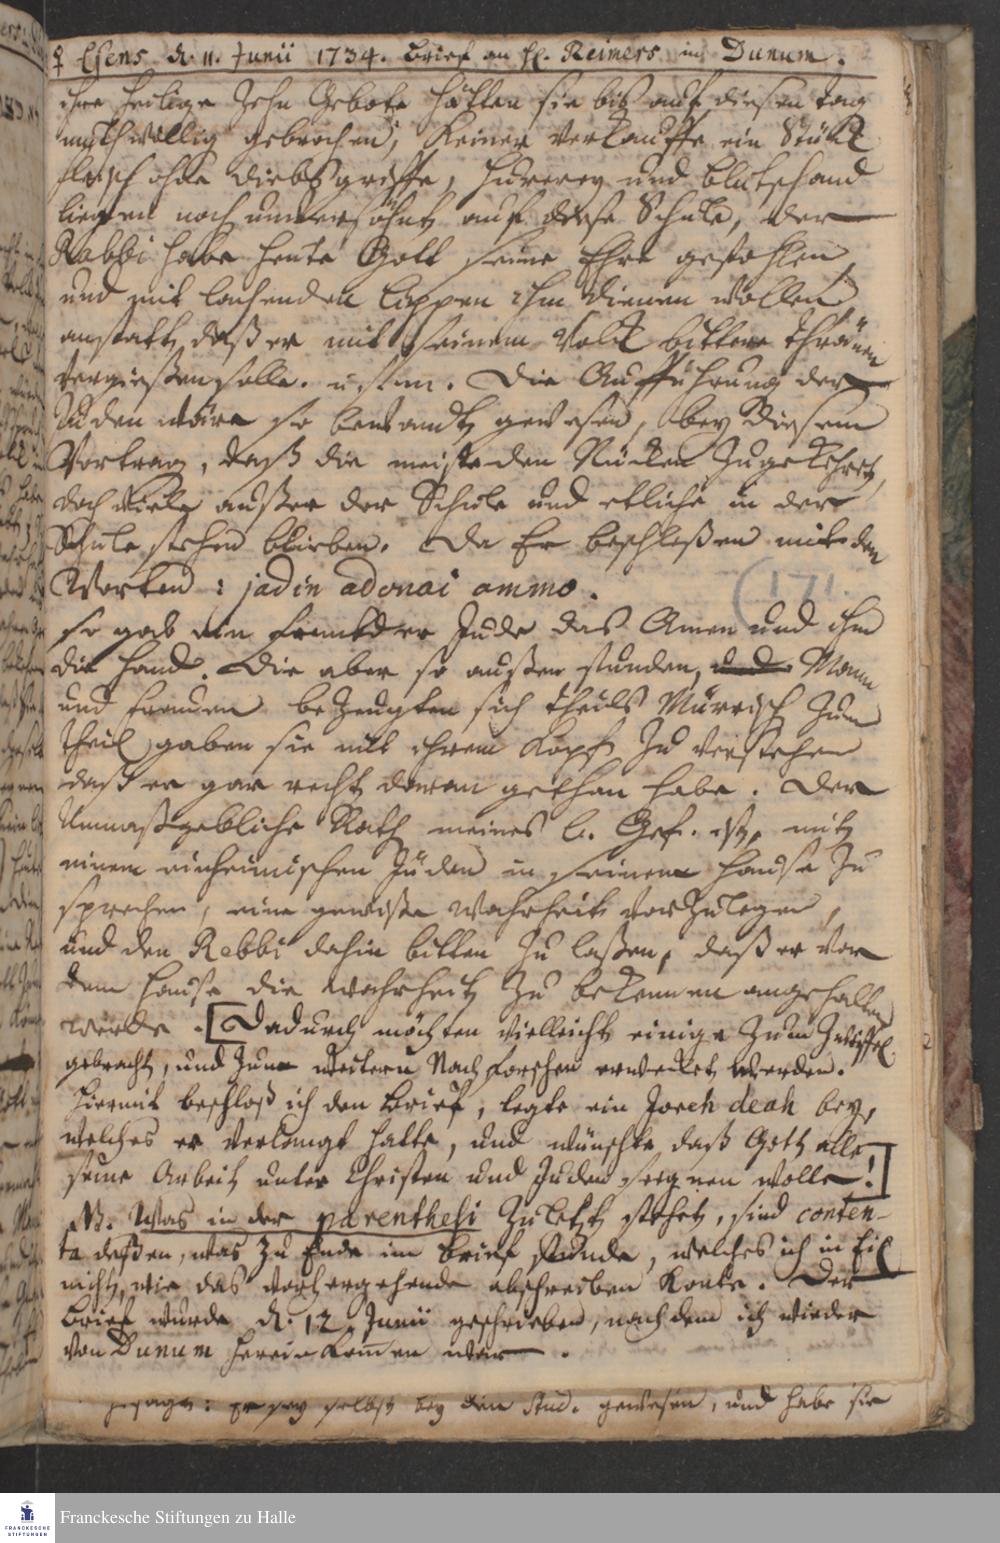 ♀ Esens d. 11. Junii 1734. Brief an H. Reimers in Dunum.
ihre heilige Zehn Gebote hätten sie biß auf diesen tag
muthwillig gebrochen, Keiner verkauffe ein Stükl
fleisch ohne Diebsgriffe, Hurerey und Blutschand
liegen noch unversöhnt auf diese Schule, der
Rabbi habe heute Gott seine Ehre gestohlen,
und mit lachenden lippen ihm dienen wollen
anstatt, daß er mit seinem Volk bittere Thränen
vergießen solle. u. s. m. Die Aufführung der
Juden wäre so bewandt gewesen, bey diesem
Vortrag, daß die meiste den Rücken zugekehret,
doch viele außer der Schule und etliche in der
Schule stehen blieben. Da Er beschloßen mit den
Worten: jadin adonai ammo. (171.
so gab ein frembder Jude das Amen und ihm
die Hand. Die aber so außen stunden, Mann
und frauen bezeugten sich theils Mürrisch zum
theil gaben sie mit ihrem Kopf zu verstehen
daß er gar recht daran gethan habe. Der
Unmaßgebliche Rath meines l. Gef. ist, mit
einem einheimischen Juden in seinem Hause zu
sprechen, eine gewisse Wahrheit vorzulegen,
und den Rabbi dahin bitten zu laßen, daß er vor
dem Hause die Wahrheit zu bekennen angehalten
werde. [Dadurch möchten vielleicht einige zum Zweiffel
gebracht, und zum weitern Nachforschen erwecket werden.
Hiermit beschloß ich den Brief, legte ein Joreh deah bey,
welches er verlangt hatte, und wünschte daß Gott alle
seine Arbeit unter Christen und Juden seegnen wolle!]
NB. Was in der parenthesi zuletzt stehet, sind conten-
ta deßen, was zu Ende im Brief stunde, welches ich in Eil
nicht, wie das vorhergehende abschreiben konte. Der
Brief wurde d. 12. Junii geschrieben, nachdem ich wieder
von Dunum herein kommen war.
gesagt: er sey selbst bey den Stud. gewesen, und habe sie
Franckesche Stiftungen zu Halle
FRANCKESCHE
STIFTUNGEN